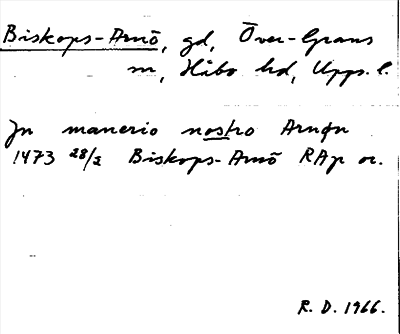 Biskops-Arnö, gd, Över-Grans
m, Håbo hd, Upps. l.
In manerio nostro Arnøn
1473 28/2 Biskops-Arnö RAp or.
R. D. 1966.